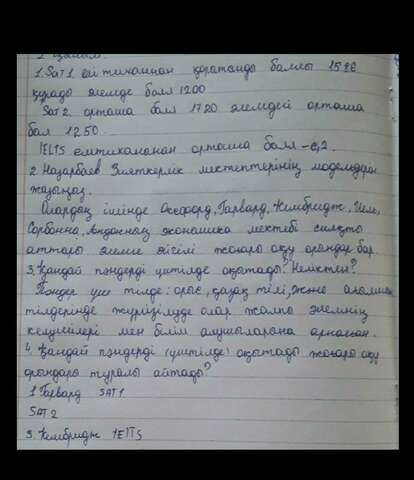 1. Sat 1. емтиханнан қорытынды баллы 15
құрады әлемде балл 1200
Sat 2. орташа балл 1720 әлемдегі орташа
бал 1250.
IELTS емтиханынан орташа балл - 6,2
2. Назарбаев Зияткерлік мектептерінің
жазыңыз.
Олардың ішінде Оксфорд, Гарвард, Кембридж, Йель,
Сорбонна, Лондонның экономика мектебі сияқты
аттары әлемге әйгілі жоғары оқу орындар бар
3. Қандай пәндерді үштілде оқытады? Неліктен?
Пәндер үш тілде: орыс, қазақ тілі, және ағылшын
тілдерінде жүргізілуде олар жалпы әлемнің
келісімері мен білім алушыларына арналған.
4. Қандай пәндерді (үштілде) оқытады жоғары оқу
орындары туралы айтады?
1. Гарвард SAT 1
SAT 2
3. Кембридж IELTS